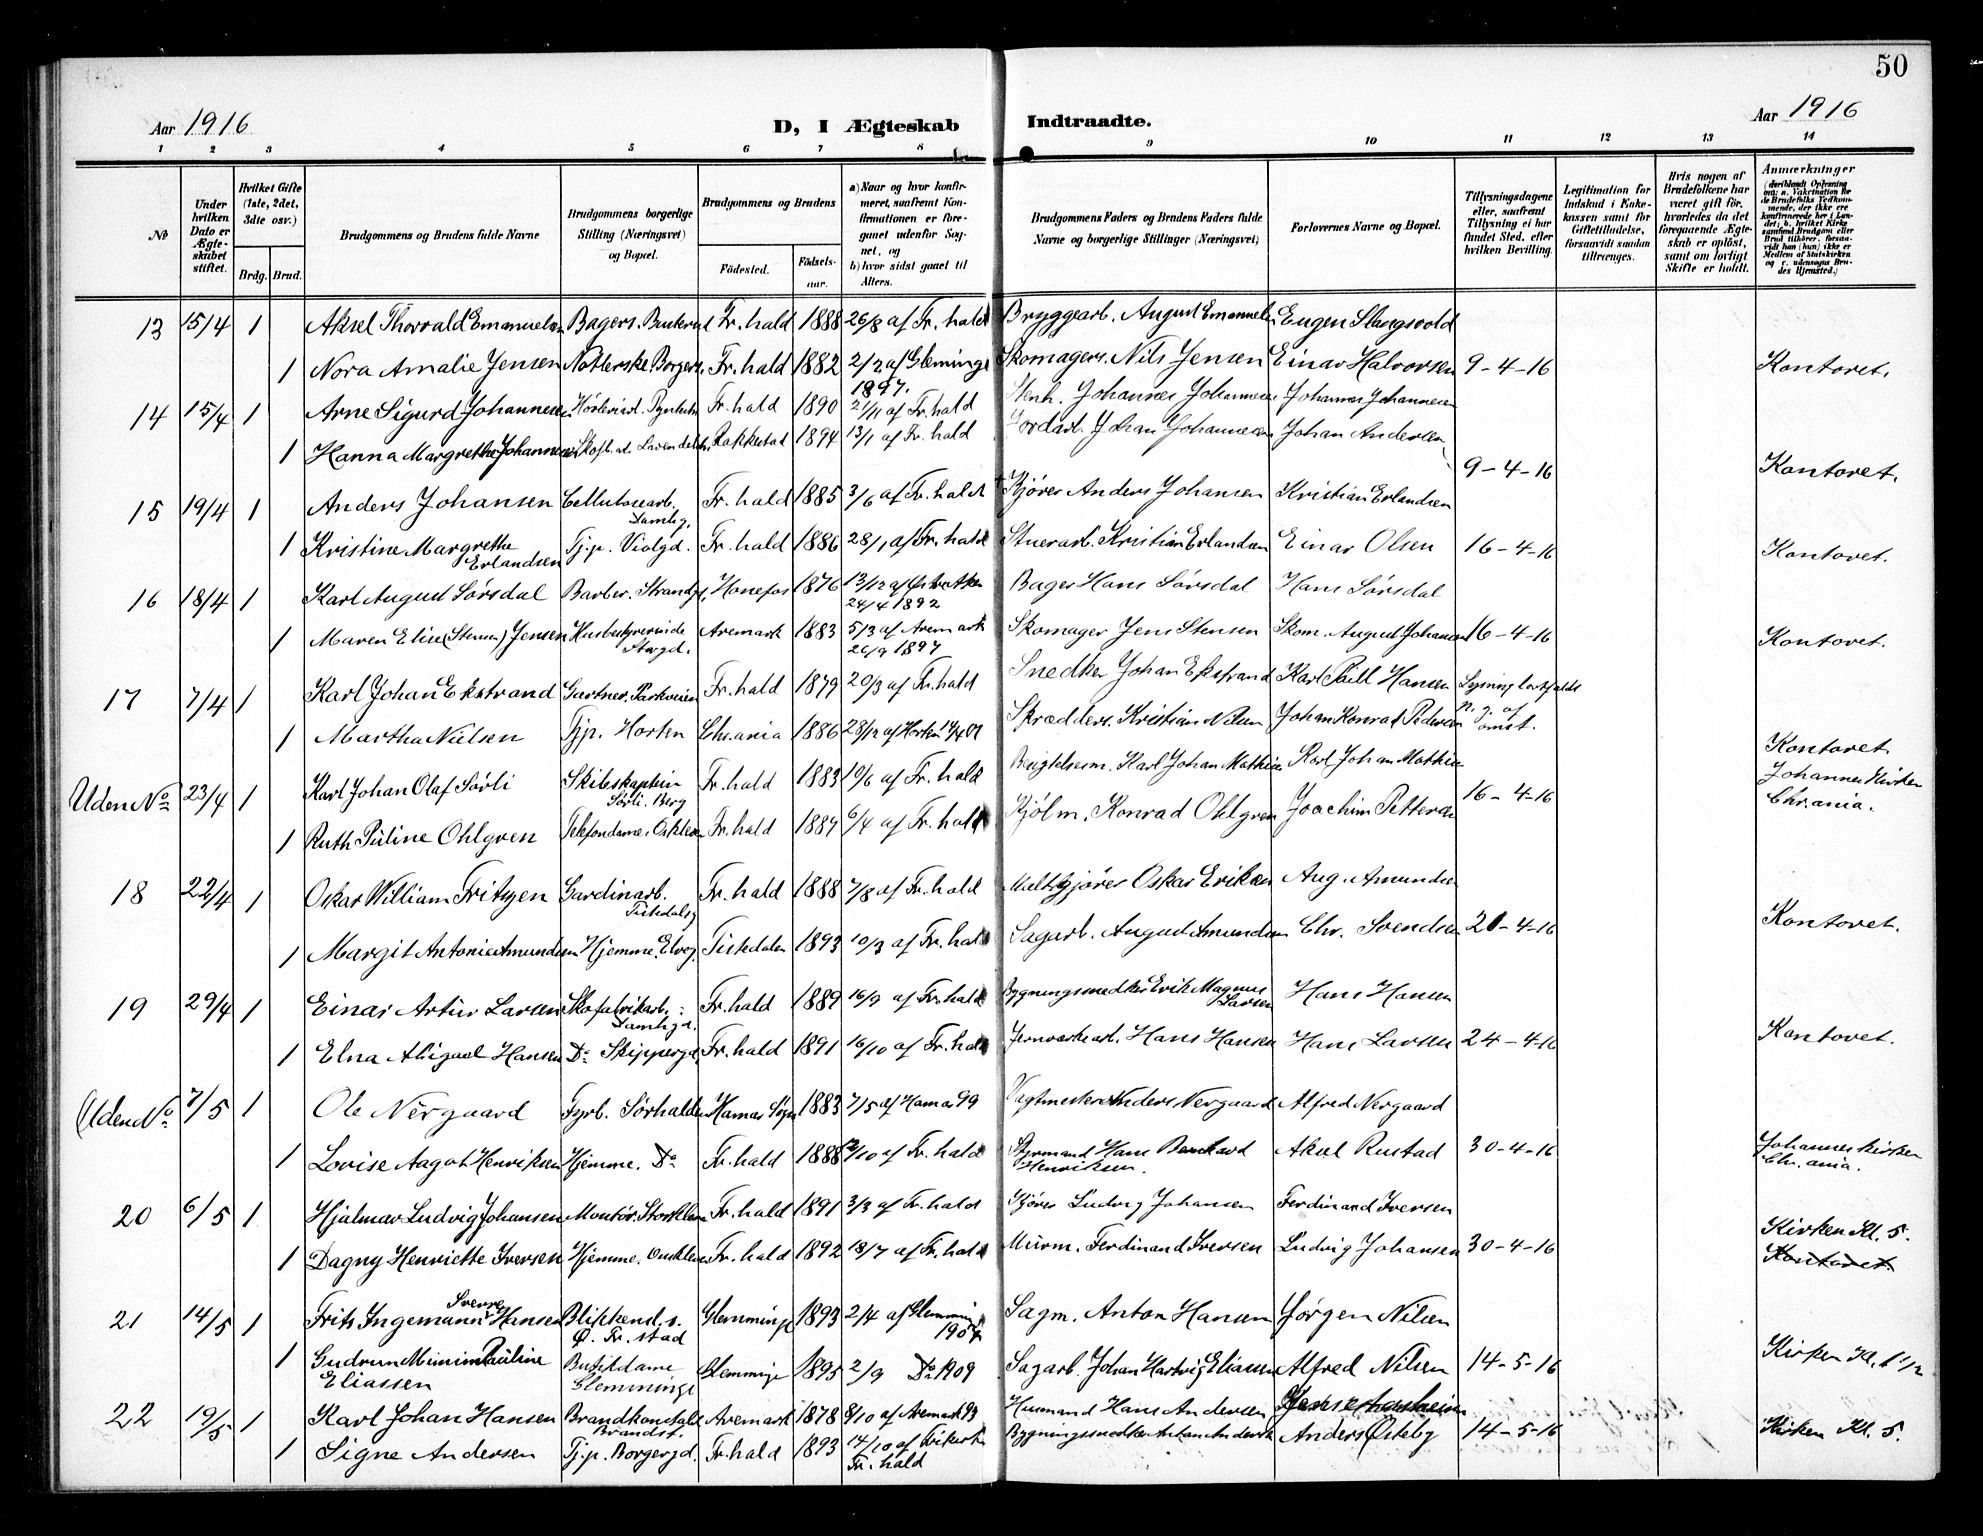 50
Aar 1916
D, I Ægteskab Indtraadte.
Aar 1916
1 2 3 4 5 6 7 8 9 10 11 12 13 14
№
Under hvilken Dato er Ægteskabet stiftet.
Hvilket Gifte (1ste, 2det, 3die osv.)
Brdg. Brud.
Brudgommens og Brudens fulde Navne
Brudgommens borgerlige Stilling (Næringsvei) og Bopæl.
Brudgommens og Brudens
Födested.
Födselsaar.
a) Naar og hvor konfirmeret, saafremt Konfirmationen er foregaaet udenfor Sognet, og
b) hvor sidst gaaet til Alters.
Brudgommens Faders og Brudens Faders fulde Navne og borgerlige Stillinger (Næringsvei)
Forlovernes Navne og Bopæl.
Tillysningsdagene eller, saafremt Tillysning ei har fundet Sted, efter hvilken Bevilling.
Legitimation for Indskud i Enkekassen samt for Giftetilladelse, forsaavidt saadan tiltrænges.
Hvis nogen af Brudefolkene har været gift før, hvorledes da det foregaaende Ægteskab er oplöst, samt om lovligt Skifte er holdt.
Anmerkninger
(deriblandt Oplysning om: a. Vakcination for de Brudefolks Vedkommende, der ikke ere konfirmerede her i Landet; b. hvilket Kirkesamfund Brudgom eller Brud tilhörer, forsaavidt han (hun) ikke er Medlem af Statskirken og c. udensogns Brudes Hjemsted.)
13 15/4 1 Aksel Thorvald Emanuelsen Bagers. Fr. hald 1888 26/8 af Fr. hald Bryggearb. August Emanuelsen Eugen Slangsvold
1 Nora Amalie Jensen Fr. hald 1882 2/2 af Glemminge 1897. Skomagers. Nils Jensen Einar Halvorsen 9-4-16 Kontoret.
14 15/4 1 Arne Sigurd Johannesen Fr. hald 1890 21/11 af Fr. hald Stenh. Johannes Johannesen Johannes Johannesen
1 Hanna Margrethe Johannesen Rakkestad 1894 13/1 af Fr. hald Jordarb. Johan Johannesen Johan Andersen 9-4-16 Kontoret.
15 19/4 1 Anders Johansen Cellulosearb. Damhg. Fr. hald 1885 3/6 af Fr. hald Kjører Anders Johansen Kristian Erlandsen
1 Kristine Margrethe Erlandsen Tj.p. Violgd. Fr. hald 1886 28/1 af Fr. hald Stuerarb. Kristian Erlandsen Einar Olsen 16-4-16 Kontoret.
16 18/4 1 Karl August Sørsdal Barber. Strandg. Honefos 1876 13/12 af 24/4 1892 Bager Hans Sørsdal Hans Sørsdal
1 Maren Elise (Stensen) Jensen Husbestyrerinde Storgd. Aremark 1883 5/3 af Aremark 26/9 1897 Skomager Jens Stensen Skom. August Johansen 16-4-16 Kontoret.
17 7/4 1 Karl Johan Ekstrand Gartner. Parkveien Fr. hald 1879 20/3 af Fr. hald Snedker Johan Ekstrand Karl Paul Hansen Lysning bortfaldt
1 Martha Nielsen Tjp. Horten Chr.ania 1886 28/12 af Horten 14/4 01 Skrædders. Kristian Nilsen Johan Konrad Pedersen p. g. af omst. Kontoret.
Uden No 23/4 1 Karl Johan Olaf Sørli Skibskaptein Sørli. Berg Fr. hald 1883 19/6 af Fr. hald Karl Johan Mathisen Karl Johan Mathisen
1 Ruth Pauline Ohlgren Telefondame. Fr. hald 1887 6/4 af Fr. hald Kjølm. Konrad Ohlgren Joachim Pettersen 16-4-16 Johannes Kirken Chr.ania.
18 22/4 1 Oskar William Fritzen Gardinarb. Tistedalsg. Fr. hald 1888 7/8 af Fr. hald Oskar Eriksen Aug. Amundsen
1 Margit Antonie Amundsen Hjemme. Elveg. Tistedalen 1893 10/3 af Fr. hald Sagarb. August Amundsen Chr. Svendsen 20-4-16 Kontoret.
19 29/4 1 Einar Artur Larsen Skofabrikarb. Damhgd. Fr. hald 1889 16/9 af Fr. hald Bygningssnedker Erik Magnus Larsen Hans Hansen
1 Elna Abigael Hansen Do Skippergd. Fr. hald 1891 16/10 af Fr. hald Jernværksarb. Hans Hansen Hans Larsen 24-4-16 Kontoret.
Uden No 7/5 1 Ole Nergaard Fyrb. Sørhalden Hamar Sogn 1883 7/5 af Hamar 99 Vagtmester Anders Nergaard Alfred Nergaard
1 Lovise Aagot Henriksen Hjemme. Do Fr. hald 1888 /10 af Fr. hald Styrmand Hans Bernhard Henriksen Aksel Rustad 30-4-16 Johannes kirken Chr.ania.
20 6/5 1 Hjalmar Ludvig Johansen Montør. Fr. hald 1891 3/3 af Fr. hald Kjører Ludvig Johansen Ferdinand Iversen
1 Dagny Henriette Iversen Hjemme. Fr. hald 1892 13/7 af Fr. hald Murm. Ferdinand Iversen Ludvig Johansen 30-4-16 Kirken Kl. 5. Kontoret.
21 14/5 1 Frits Ingemann Sverre Hansen Blikkensl. s. Ø. Fr. stad Glemminge 1893 2/4 af Glemminge Sagm. Anton Hansen Jørgen Nilsen
1 Gudrun Mimimi Pauline Eliassen Butikdame Glemminge Glemminge 1895 2/9 Do 1909 Sagarb. Johan Hartvig Eliassen Alfred Nilsen 14-5-16 Kirken Kl. 6 1/2
22 19/5 1 Karl Johan Hansen Brandkonstabel Brandst. Aremark 1878 8/10 af Aremark 93 Husmand Hans Andersen
1 Signe Andersen Tj.p. Borgergd. Fr. hald 1893 14/10 af Fr. hald Bygningssnedker Anton Andersen Anders Østeby 14-5-16 Kirken Kl. 5.